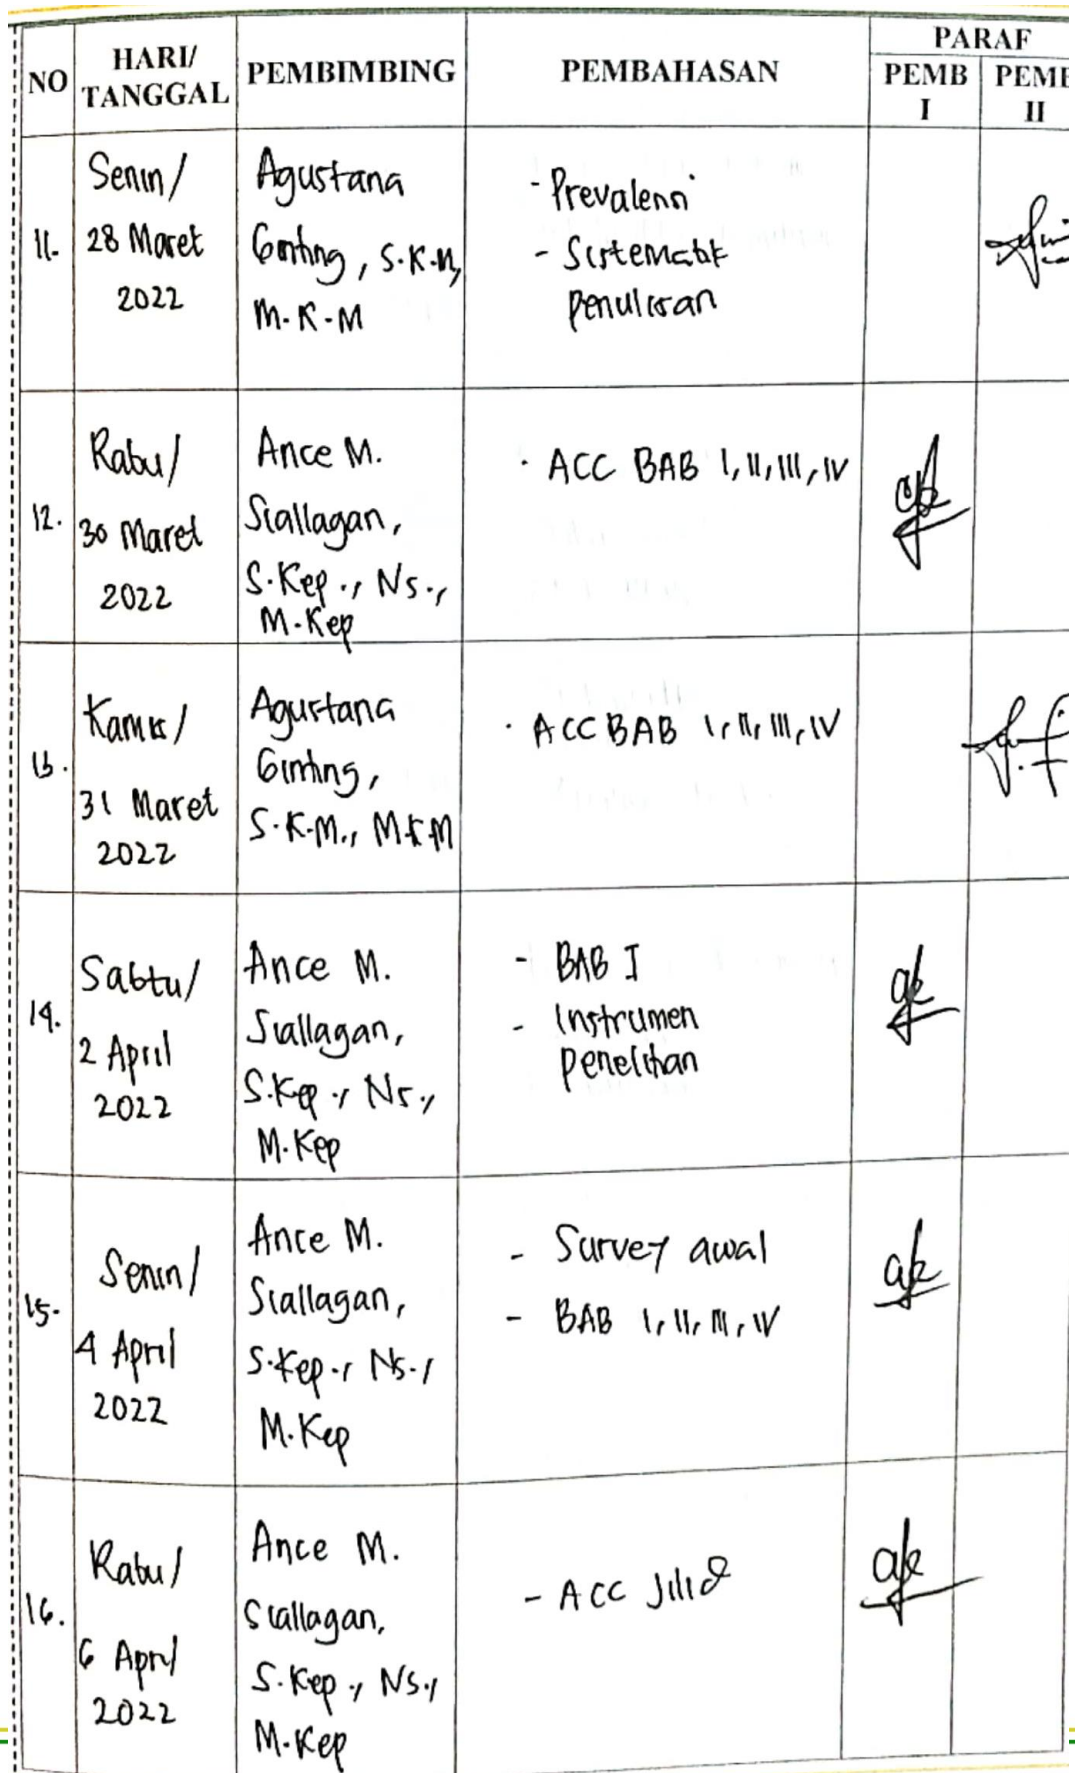 NO
HARI/
TANGGAL
PEMBIMBING
PEMBAHASAN
PARAF
PEMB
I
PEMB
II
11.
Senin/
28 Maret
2022
Agustana
Ginting, S.K.M,
M.K.M
- Prevalensi
- Sistematik
penulisan
12.
Rabu/
30 Maret
2022
Ance M.
Siallagan,
S.Kep., Ns.,
M.Kep
· ACC BAB I, II, III, IV
13.
Kamis/
31 Maret
2022
Agustana
Ginting,
S.K.M., M.K.M
· ACC BAB I, II, III, IV
14.
Sabtu/
2 April
2022
Ance M.
Siallagan,
S.Kep., Ns.,
M.Kep
- BAB I
- Instrumen
penelitian
15.
Senin/
4 April
2022
Ance M.
Siallagan,
S.Kep., Ns.,
M.Kep
- Survey awal
- BAB I, II, III, IV
16.
Rabu/
6 April
2022
Ance M.
Siallagan,
S.Kep., Ns.,
M.Kep
- ACC Jilid